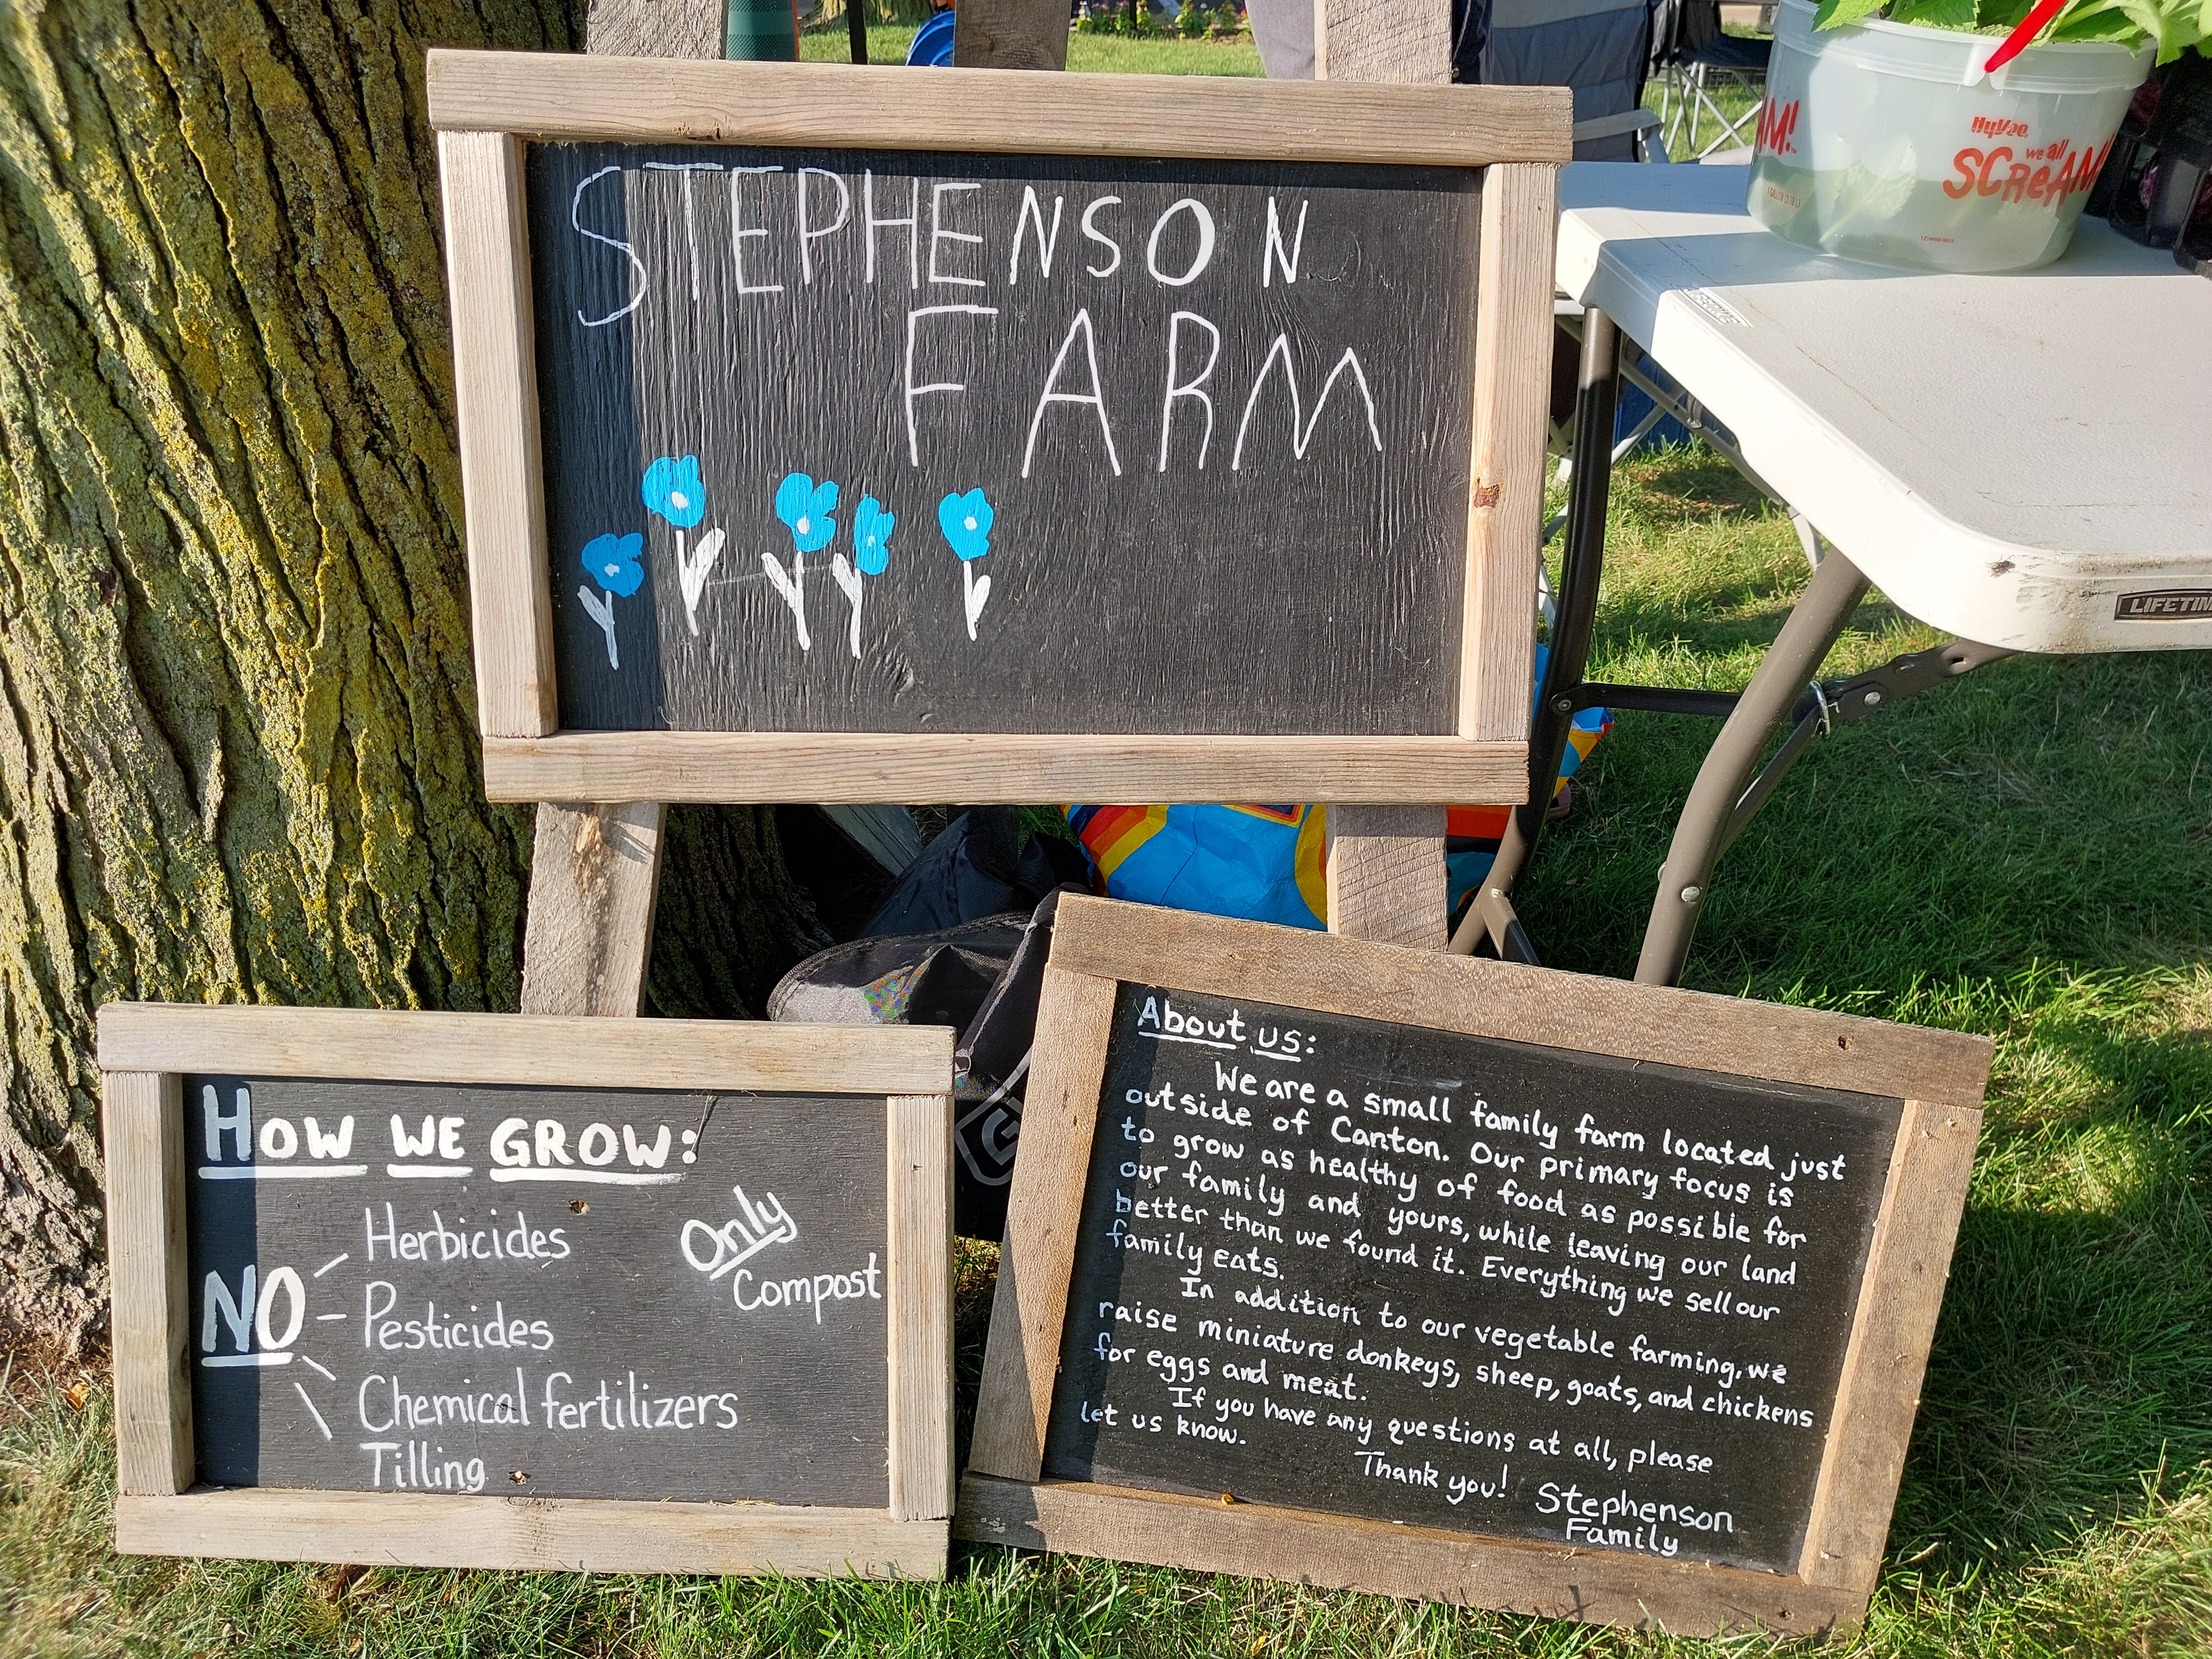 STEPHENSON
FARM
HyVee
we all
SCReAM!
AM!
LIFETIM
HOW WE GROW:
NO
Herbicides
Pesticides
Chemical fertilizers
Tilling
Only
Compost
About us:
We are a small family farm located just
outside of Canton. Our primary focus is
to grow as healthy of food as possible for
our family and yours, while leaving our land
better than we found it. Everything we sell our
family eats.
In addition to our vegetable farming, we
raise miniature donkeys, sheep, goats, and chickens
for eggs and meat.
If you have any questions at all, please
let us know.
Thank you!
Stephenson
Family